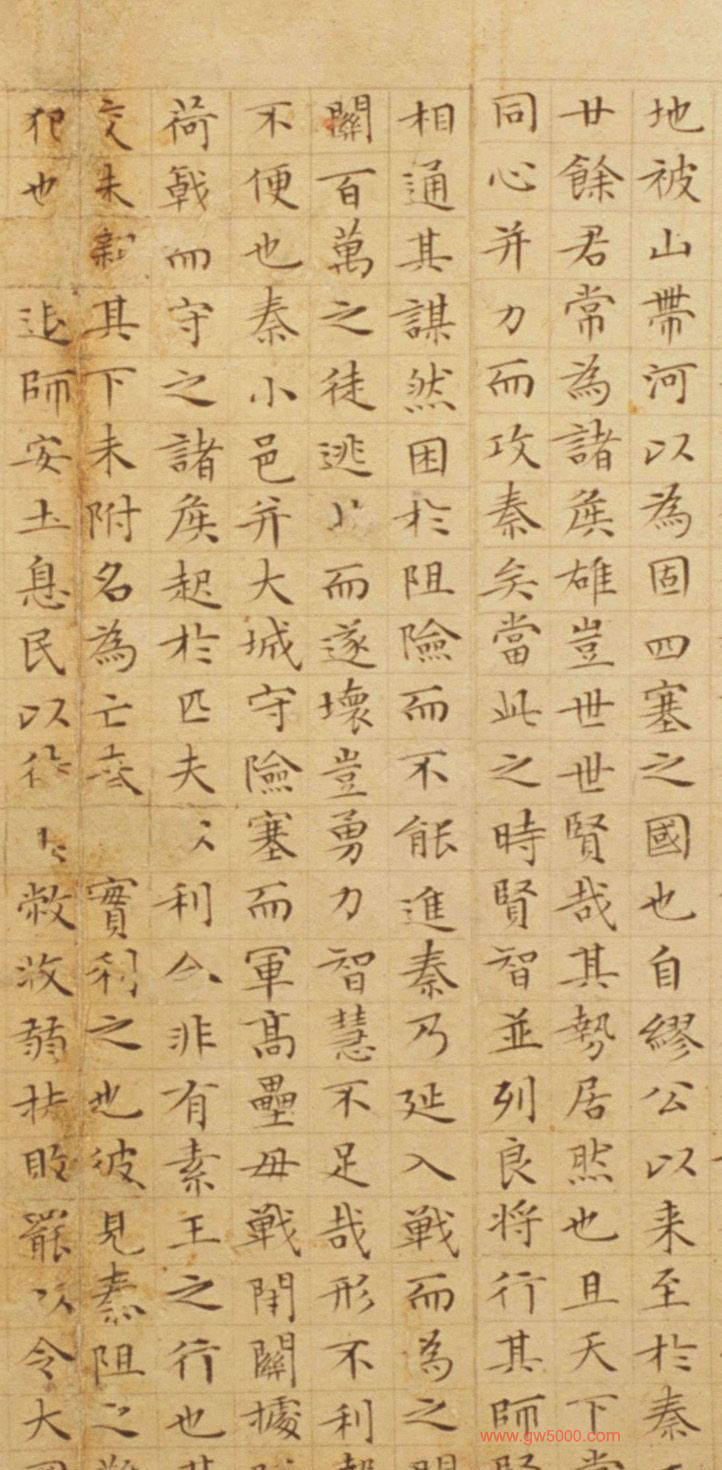 地被山帶河以為固四塞之國也自繆公以来至於秦
廿餘君常為諸侯雄豈世世賢哉其勢居然也且天下
同心并力而攻秦矣當此之時賢智並列良将行其師
相通其謀然困於阻險而不能進秦乃延入戦而為之
關百萬之徒逃而遂壞豈勇力智慧不足哉形不利
不便也秦小邑并大城守險塞而軍高壘毋戦閇關據
荷戟而守之諸侯起於匹夫利合非有素王之行也
交未親其下未附名為亡秦實利之也彼見秦阻之
犯也退師安土息民以待敝收弱扶敗罷以令大
www.gw5000.com